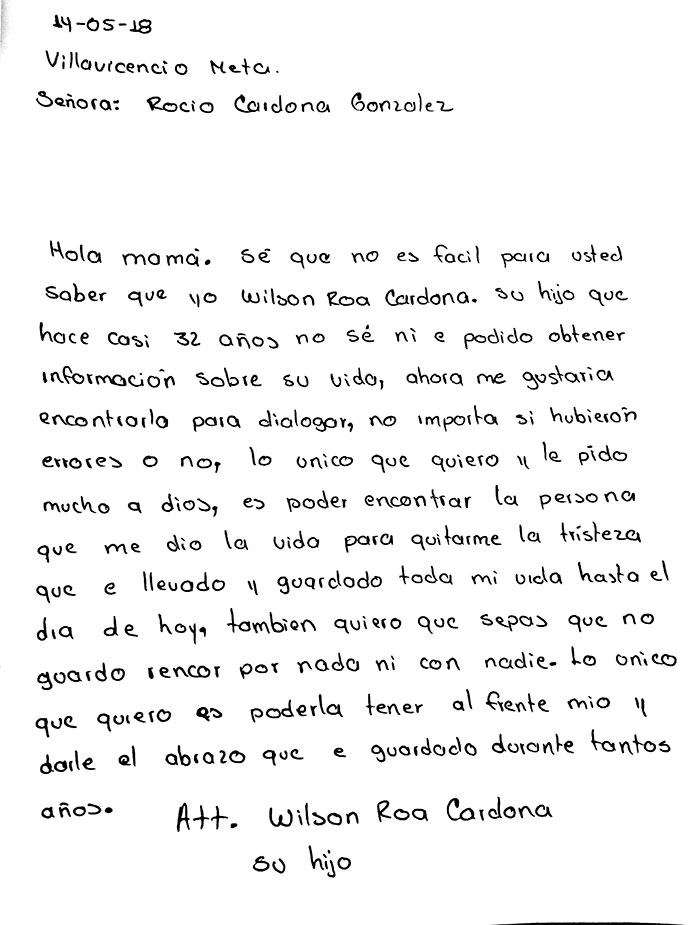 14-05-18
Villavicencio Meta.
Señora: Rocio Cardona Gonzalez
Hola mamá. sé que no es facil para usted
saber que yo Wilson Roa Cardona. su hijo que
hace casi 32 años no sé ni e podido obtener
información sobre su vida, ahora me gustaria
encontrarla para dialogar, no importa si hubierón
errores o no, lo unico que quiero y le pido
mucho a dios, es poder encontrar la persona
que me dio la vida para quitarme la tristeza
que e llevado y guardado toda mi vida hasta el
dia de hoy, tambien quiero que sepas que no
guardo rencor por nada ni con nadie. Lo unico
que quiero es poderla tener al frente mio y
darle el abrazo que e guardado durante tantos
años. Att. Wilson Roa Cardona
su hijo